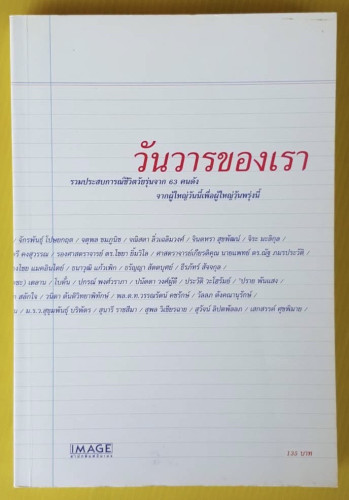 วันวารของเรา
รวมประสบการณ์ชีวิตวัยรุ่นจาก 63 คนดัง
จากผู้ใหญ่วันนี้เพื่อผู้ใหญ่วันพรุ่งนี้
/ จักรพันธุ์ โปษยกฤต / จตุพล ชมภูนิช / ชนิสดา ลิ่วเฉลิมวงศ์ / จินตหรา สุขพัฒน์ / จิระ มะลิกุล /
รี คงสุวรรณ / รองศาสตราจารย์ ดร.ไชยา ยิ้มวิไล / ศาสตราจารย์เกียรติคุณ นายแพทย์ ดร.ณัฐ ภมรประวัติ /
งไชย แมคอินไตย์ / ธนาวุฒิ แก้วเพ็ก / ธรัญญา สัตตบุศย์ / ธีรภัทร์ สัจจกุล /
ยะ) เดลาน / ใบตั้น / ปกรณ์ พงศ์วราภา / ปนัดดา วงศ์ผู้ดี / ประวัติ วะโฮรัมย์ / "ปราย พันแสง /
สลักใจ / วนิดา ตันติวิทยาพิทักษ์ / พล.อ.ท.วรรณรัตน์ คชรักษ์ / วัลลภ ตังคณานุรักษ์ /
น / ม.ร.ว.สุขุมพันธุ์ บริพัตร / สุนารี ราชสีมา / สุพล วิเชียรฉาย / สุวัจน์ ลิปตพัลลภ / เสกสรรค์ ศุขพิมาย /
IMAGE
135 บาท